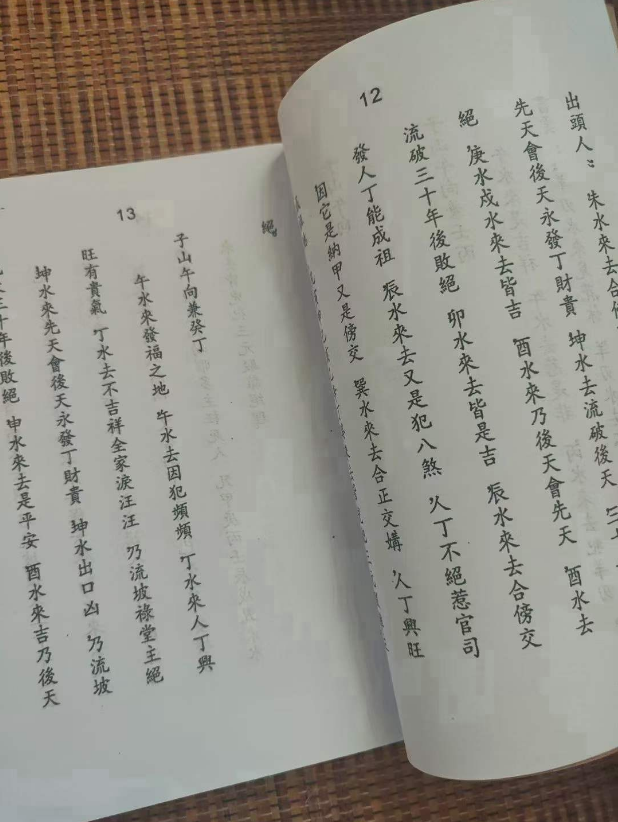 12
出頭人：朱水來去合
先天會後天永發丁財貴 坤水去流破後天
絕 庚水戍水來去皆吉 酉水來乃後天會先天 酉水去
流破三十年後敗絕 卯水來去皆是吉 辰水來去合傍交
發人丁能成祖 辰水來去又是犯八煞 人丁不絕惹官司
因它是納甲又是傍交 巽水來去合正交媾 人丁興旺
13
絕。
子山午向兼癸丁
午水來發福之地 午水去因犯頻頻 丁水來人丁興
旺有貴氣 丁水去不吉祥全家淚汪汪 乃流坡祿堂主絕
坤水來先天會後天永發丁財貴 坤水出口凶 乃流坡
三十年後敗絕 申水來去是平安 酉水來吉乃後天